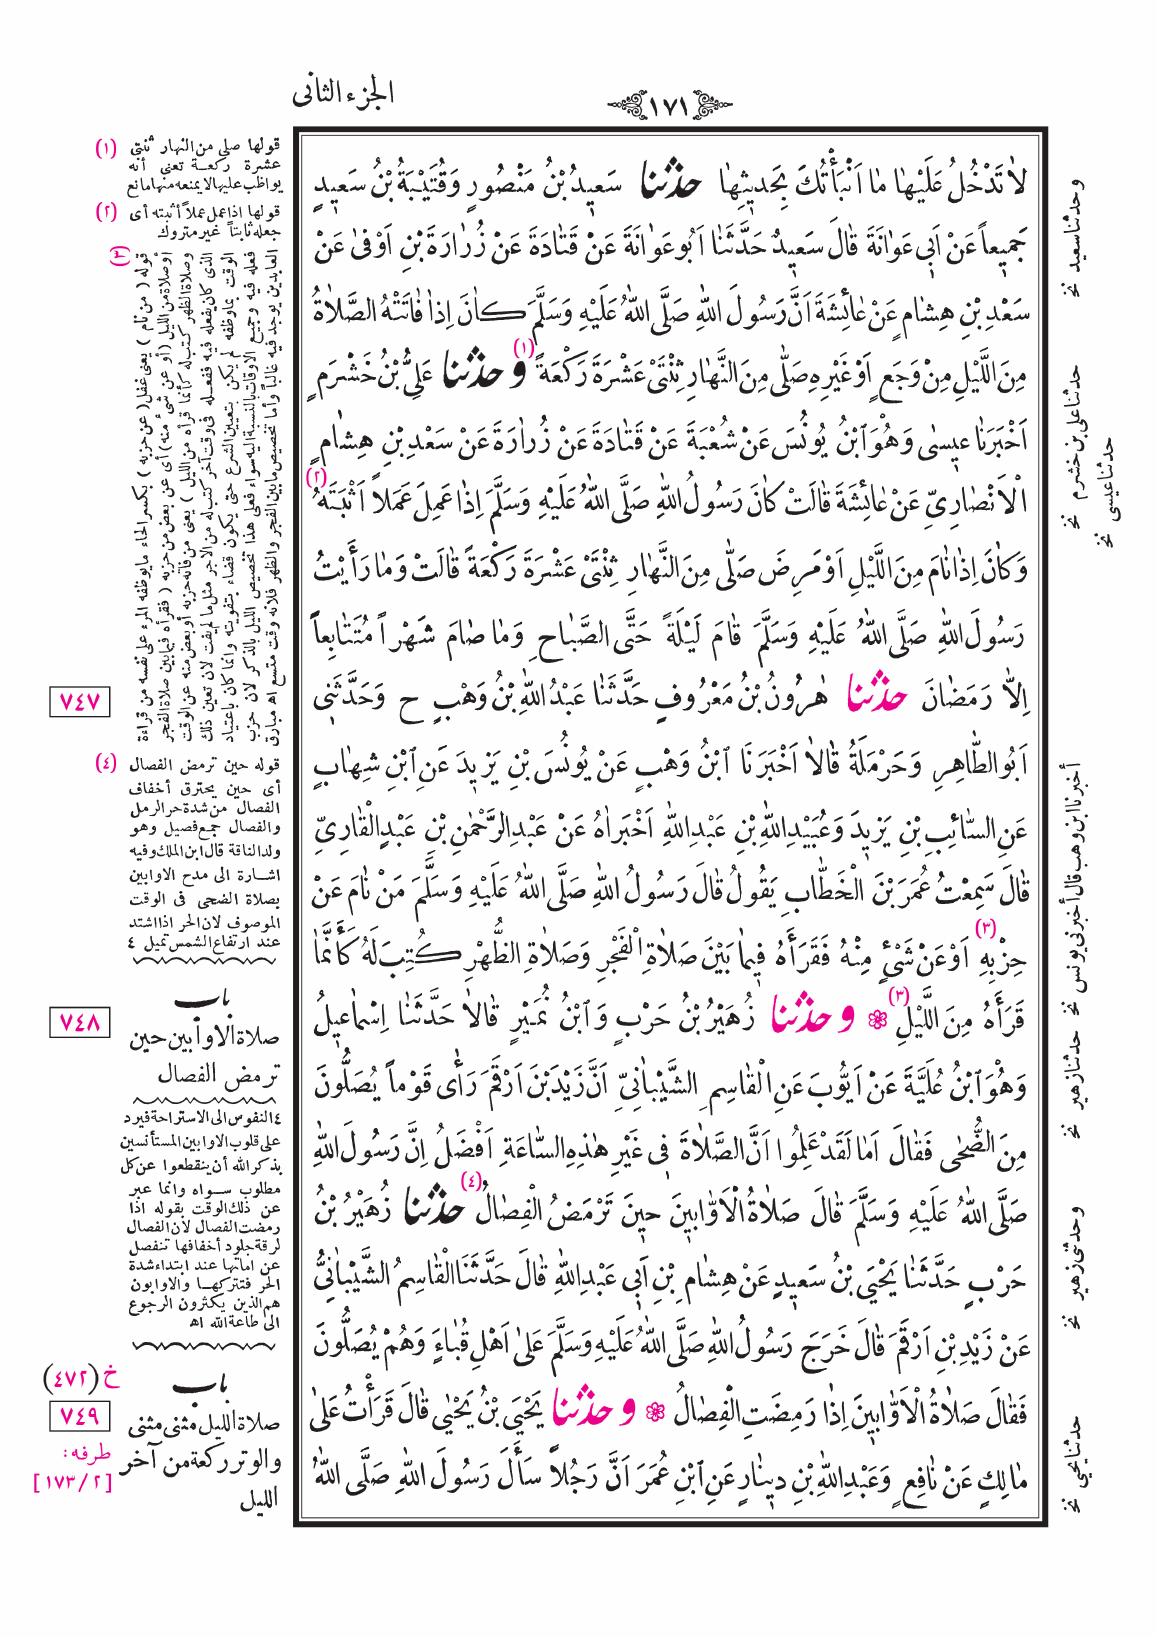 الجزء الثاني
﴿١٧١﴾
لَا تَدْخُلُ عَلَيْهَا مَا أَنْبَأْتُكَ بِحَدِيثِهَا حَدَّثَنَا سَعِيدُ بْنُ مَنْصُورٍ وَقُتَيْبَةُ بْنُ سَعِيدٍ
جَمِيعاً عَنْ أَبِي عَوَانَةَ قَالَ سَعِيدٌ حَدَّثَنَا أَبُو عَوَانَةَ عَنْ قَتَادَةَ عَنْ زُرَارَةَ بْنِ أَوْفَى عَنْ
سَعْدِ بْنِ هِشَامٍ عَنْ عَائِشَةَ أَنَّ رَسُولَ اللهِ صَلَّى اللهُ عَلَيْهِ وَسَلَّمَ كَانَ إِذَا فَاتَتْهُ الصَّلَاةُ
مِنَ اللَّيْلِ مِنْ وَجَعٍ أَوْ غَيْرِهِ صَلَّى مِنَ النَّهَارِ ثِنْتَيْ عَشْرَةَ رَكْعَةً (١) وحَدَّثَنَا عَلِيُّ بْنُ خَشْرَمٍ
أَخْبَرَنَا عِيسَى وَهُوَ ابْنُ يُونُسَ عَنْ شُعْبَةَ عَنْ قَتَادَةَ عَنْ زُرَارَةَ عَنْ سَعْدِ بْنِ هِشَامٍ
الْأَنْصَارِيِّ عَنْ عَائِشَةَ قَالَتْ كَانَ رَسُولُ اللهِ صَلَّى اللهُ عَلَيْهِ وَسَلَّمَ إِذَا عَمِلَ عَمَلاً أَثْبَتَهُ (٢)
وَكَانَ إِذَا نَامَ مِنَ اللَّيْلِ أَوْ مَرِضَ صَلَّى مِنَ النَّهَارِ ثِنْتَيْ عَشْرَةَ رَكْعَةً قَالَتْ وَمَا رَأَيْتُ
رَسُولَ اللهِ صَلَّى اللهُ عَلَيْهِ وَسَلَّمَ قَامَ لَيْلَةً حَتَّى الصَّبَاحِ وَمَا صَامَ شَهْراً مُتَتَابِعاً
إِلَّا رَمَضَانَ حَدَّثَنَا هَرُونُ بْنُ مَعْرُوفٍ حَدَّثَنَا عَبْدُ اللهِ بْنُ وَهْبٍ ح وَحَدَّثَنِي
أَبُو الطَّاهِرِ وَحَرْمَلَةُ قَالَا أَخْبَرَنَا ابْنُ وَهْبٍ عَنْ يُونُسَ بْنِ يَزِيدَ عَنِ ابْنِ شِهَابٍ
عَنِ السَّائِبِ بْنِ يَزِيدَ وَعُبَيْدِ اللهِ بْنِ عَبْدِ اللهِ أَخْبَرَاهُ عَنْ عَبْدِ الرَّحْمَنِ بْنِ عَبْدٍ الْقَارِيِّ
قَالَ سَمِعْتُ عُمَرَ بْنَ الْخَطَّابِ يَقُولُ قَالَ رَسُولُ اللهِ صَلَّى اللهُ عَلَيْهِ وَسَلَّمَ مَنْ نَامَ عَنْ
حِزْبِهِ (٣) أَوْ عَنْ شَيْءٍ مِنْهُ فَقَرَأَهُ فِيمَا بَيْنَ صَلَاةِ الْفَجْرِ وَصَلَاةِ الظُّهْرِ كُتِبَ لَهُ كَأَنَّمَا
قَرَأَهُ مِنَ اللَّيْلِ (٣) ❁ وحَدَّثَنَا زُهَيْرُ بْنُ حَرْبٍ وَابْنُ نُمَيْرٍ قَالَا حَدَّثَنَا إِسْمَاعِيلُ
وَهُوَ ابْنُ عُلَيَّةَ عَنْ أَيُّوبَ عَنِ الْقَاسِمِ الشَّيْبَانِيِّ أَنَّ زَيْدَ بْنَ أَرْقَمَ رَأَى قَوْماً يُصَلُّونَ
مِنَ الضُّحَى فَقَالَ أَمَا لَقَدْ عَلِمُوا أَنَّ الصَّلَاةَ فِي غَيْرِ هَذِهِ السَّاعَةِ أَفْضَلُ إِنَّ رَسُولَ اللهِ
صَلَّى اللهُ عَلَيْهِ وَسَلَّمَ قَالَ صَلَاةُ الْأَوَّابِينَ حِينَ تَرْمَضُ الْفِصَالُ (٤) حَدَّثَنَا زُهَيْرُ بْنُ
حَرْبٍ حَدَّثَنَا يَحْيَى بْنُ سَعِيدٍ عَنْ هِشَامِ بْنِ أَبِي عَبْدِ اللهِ قَالَ حَدَّثَنَا الْقَاسِمُ الشَّيْبَانِيُّ
عَنْ زَيْدِ بْنِ أَرْقَمَ قَالَ خَرَجَ رَسُولُ اللهِ صَلَّى اللهُ عَلَيْهِ وَسَلَّمَ عَلَى أَهْلِ قُبَاءٍ وَهُمْ يُصَلُّونَ
فَقَالَ صَلَاةُ الْأَوَّابِينَ إِذَا رَمِضَتِ الْفِصَالُ ❁ وحَدَّثَنَا يَحْيَى بْنُ يَحْيَى قَالَ قَرَأْتُ عَلَى
مَالِكٍ عَنْ نَافِعٍ وَعَبْدِ اللهِ بْنِ دِينَارٍ عَنِ ابْنِ عُمَرَ أَنَّ رَجُلاً سَأَلَ رَسُولَ اللهِ صَلَّى اللهُ
وحدثنا سعيد نخ
حدثنا علي بن خشرم نخ
حدثنا عيسى نخ
أخبرنا ابن وهب قال أخبرني يونس نخ
حدثنا زهير نخ
وحدثني زهير نخ
حدثنا يحيى نخ
(١) قولها صلى من النهار ثنتى
عشرة ركعة تعنى أنه
يواظب عليها لا يمنعه منها مانع
(٢) قولها اذا عمل عملاً أثبته أى
جعله ثابتاً غير متروك
(٣) قوله ( من نام ) يعنى غفل ( عن حزبه ) بكسر الحاء ما يوظفه المرء على نفسه من قراءة
أو صلاة من الليل ( أو عن شئ منه ) أى عن بعض من حزبه ( فقرأه فيما بين صلاة الفجر
وصلاة الظهر كتب له كأنما قرأه من الليل ) يعنى من فاته حزبه أو بعض منه عن الوقت
الذى كان يفعله فيه ففعله فى وقت آخر كتب له من الاجر مثل ما لم يفت لان تعيين ذلك
الوقت بما وظفه لم يكن بتعيين الشرع حتى يكون قضاء بتفويته وانما كان باعتياد
فعله فيه وجميع الاوقات بالنسبة اليه سواء فعلى هذا تخصيص الليل بالذكر لان حزب
العابدين يوجد فيه غالباً وأما تخصيص ما بين الفجر والظهر فلانه وقت متسع اه مبارق
٧٤٧
(٤) قوله حين ترمض الفصال
أى حين يحترق أخفاف
الفصال من شدة حر الرمل
والفصال جمع فصيل وهو
ولد الناقة قال ابن الملك وفيه
اشارة الى مدح الاوابين
بصلاة الضحى فى الوقت
الموصوف لان الحر اذا اشتد
عند ارتفاع الشمس تميل ٤
٧٤٨
باب
صلاة الاوابين حين
ترمض الفصال
٤ النفوس الى الاستراحة فيرد
على قلوب الاوابين المستأنسين
بذكر الله أن ينقطعوا عن كل
مطلوب سواه وانما عبر
عن ذلك الوقت بقوله اذا
رمضت الفصال لأن الفصال
لرقة جلود أخفافها تنفصل
عن اماتها عند ابتداء شدة
الحر فتتركها والاوابون
هم الذين يكثرون الرجوع
الى طاعة الله اه
خ (٤٧٢)
٧٤٩
طرفه:
[١٧٣/٢]
باب
صلاة الليل مثنى مثنى
والوتر ركعة من آخر
الليل